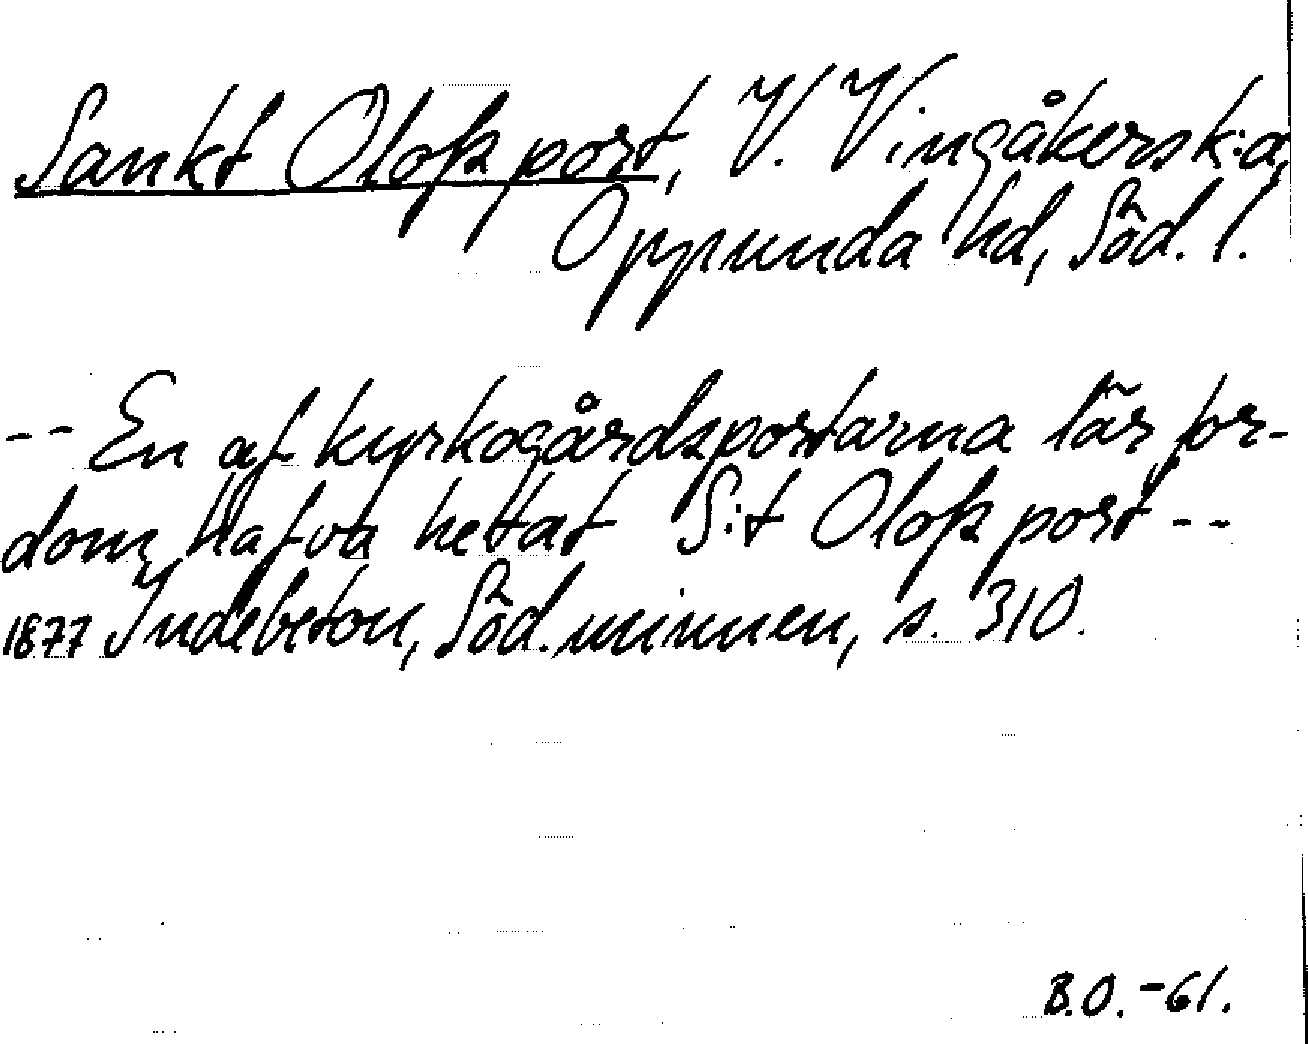 Sankt Olofs port, V. Vingåkers k:a,
Oppunda hd, Söd. l.
-- En af kyrkogårdsportarna lär for-
dom hafva hettat S:t Olofs port --
1877 Indebetou, Söd. minnen, s. 310.
B.O. -61.